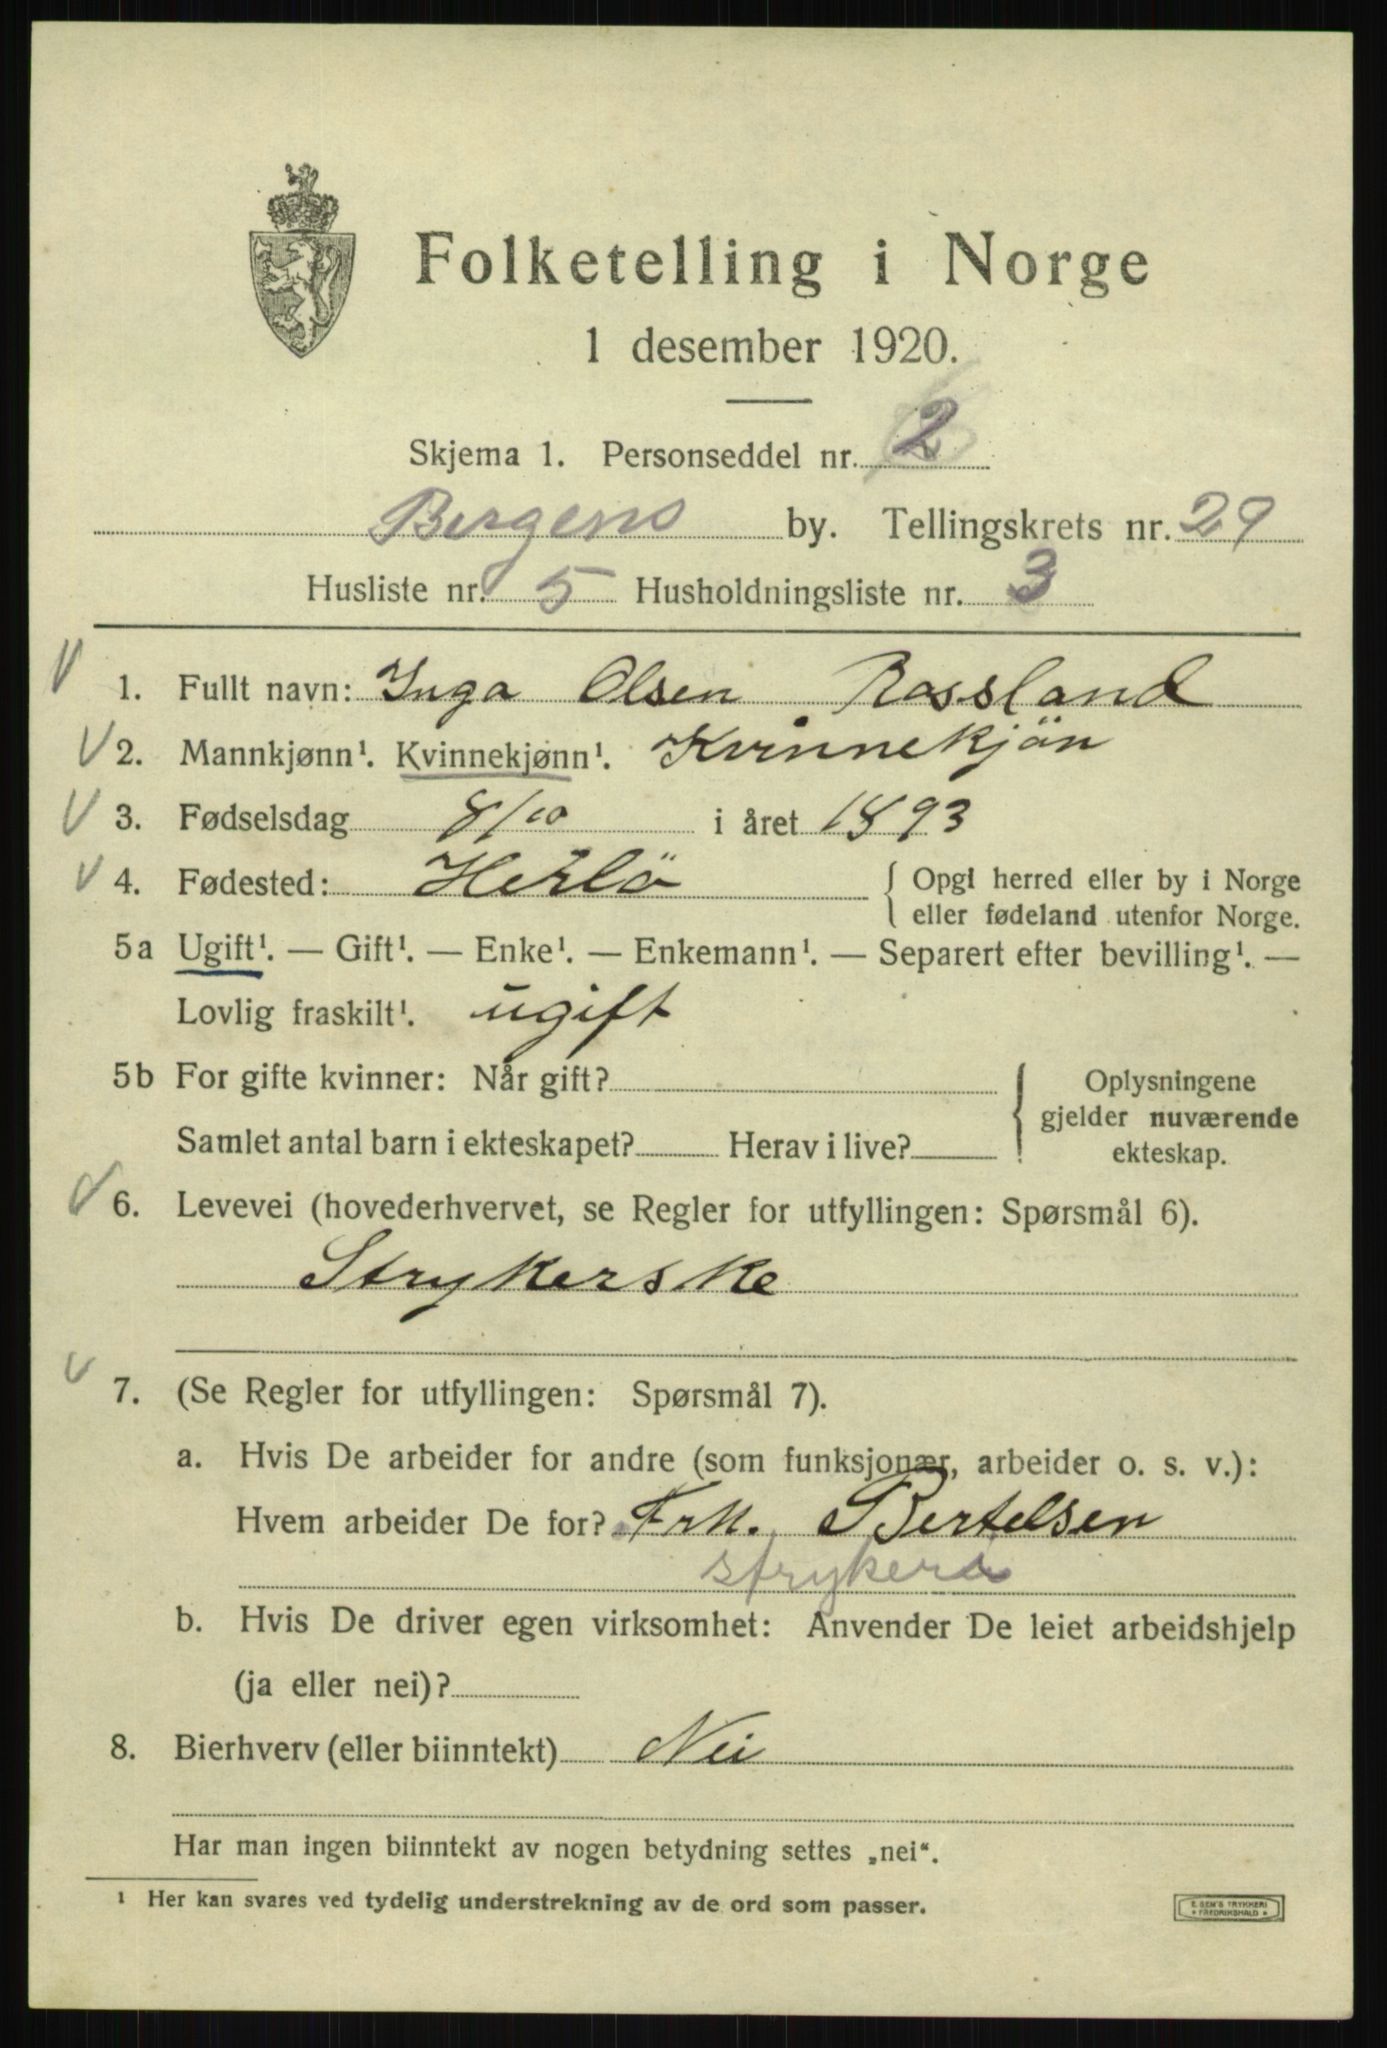 Folketelling i Norge
1 desember 1920.
Skjema 1. Personseddel nr. 2
Bergens by. Tellingskrets nr. 29
Husliste nr. 5 Husholdningsliste nr. 3
1. Fullt navn: Inga Olsen Rossland
2. Mannkjønn¹. Kvinnekjønn¹. Kvinnekjön
3. Fødselsdag 8/10 i året 1893
4. Fødested: Herlö { Opgi herred eller by i Norge
eller fødeland utenfor Norge.
5a Ugift¹. — Gift¹. — Enke¹. — Enkemann¹. — Separert efter bevilling¹. —
Lovlig fraskilt¹. ugift
5b For gifte kvinner: Når gift? { Oplysningene
gjelder nuværende
Samlet antal barn i ekteskapet? Herav i live? ekteskap.
6. Levevei (hovederhvervet, se Regler for utfyllingen: Spørsmål 6).
Strykerske
7. (Se Regler for utfyllingen: Spørsmål 7).
a. Hvis De arbeider for andre (som funksjonær, arbeider o. s. v.):
Hvem arbeider De for? Frk. Bertelsen
strykeri
b. Hvis De driver egen virksomhet: Anvender De leiet arbeidshjelp
(ja eller nei)?
8. Bierhverv (eller biinntekt) Nei
Har man ingen biinntekt av nogen betydning settes „nei“.
¹ Her kan svares ved tydelig understrekning av de ord som passer.
E. SEM'S TRYKKERI
FREDRIKSHALD